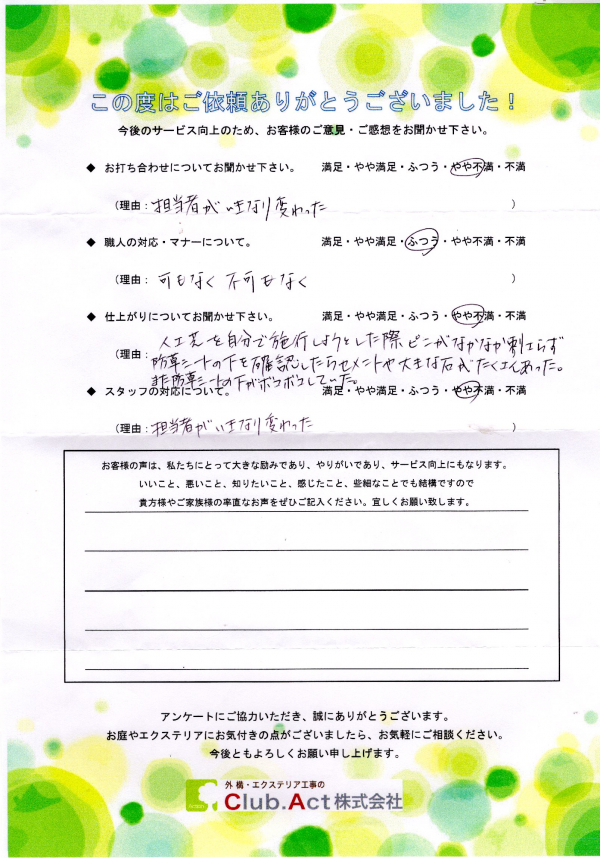 この度はご依頼ありがとうございました！
今後のサービス向上のため、お客様のご意見・ご感想をお聞かせ下さい。
◆ お打ち合わせについてお聞かせ下さい。 満足・やや満足・ふつう・やや不満・不満
（理由：担当者がいきなり変わった ）
◆ 職人の対応・マナーについて。 満足・やや満足・ふつう・やや不満・不満
（理由：可もなく 不可もなく ）
◆ 仕上がりについてお聞かせ下さい。 満足・やや満足・ふつう・やや不満・不満
人工芝を自分で施行しようとした際ピンがなかなか刺さらず
（理由：防草シートの下を確認したらセメントや大きな石がたくさんあった。
また防草シートの下がボコボコしていた。
◆ スタッフの対応について。 満足・やや満足・ふつう・やや不満・不満
（理由：担当者がいきなり変わった ）
お客様の声は、私たちにとって大きな励みであり、やりがいであり、サービス向上にもなります。
いいこと、悪いこと、知りたいこと、感じたこと、些細なことでも結構ですので
貴方様やご家族様の率直なお声をぜひご記入ください。宜しくお願い致します。
アンケートにご協力いただき、誠にありがとうございます。
お庭やエクステリアにお気付きの点がございましたら、お気軽にご相談ください。
今後ともよろしくお願い申し上げます。
外構・エクステリア工事の
Club.Act株式会社